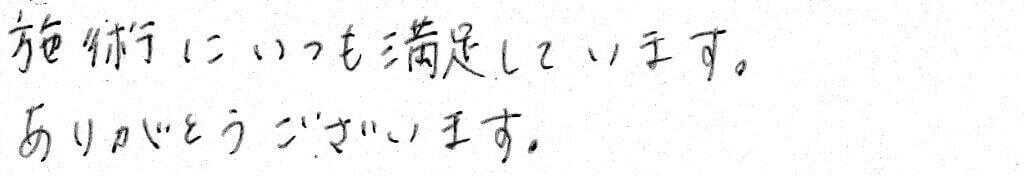 施術にいつも満足しています。
ありがとうございます。